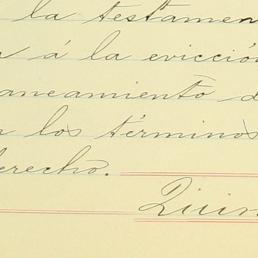 la testamen
á la evicción
aneamiento d
los términos
erecho.
Quin